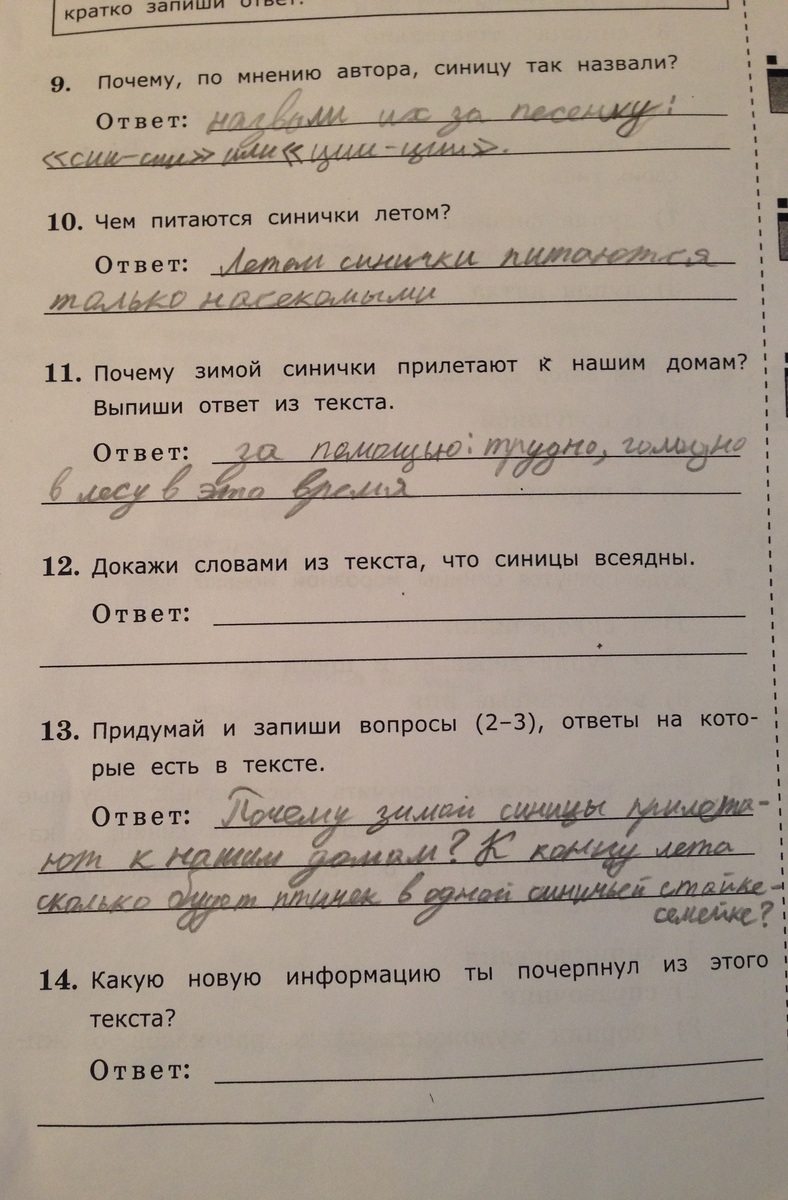 кратко запиши ответ.
9. Почему, по мнению автора, синицу так назвали?
Ответ: назвали их за песенку:
«син-син» или «ции-ции».
10. Чем питаются синички летом?
Ответ: Летом синички питаются
только насекомыми
11. Почему зимой синички прилетают к нашим домам?
Выпиши ответ из текста.
Ответ: за помощью: трудно, голодно
в лесу в это время
12. Докажи словами из текста, что синицы всеядны.
Ответ:
13. Придумай и запиши вопросы (2–3), ответы на кото-
рые есть в тексте.
Ответ: Почему зимой синицы прилета-
ют к нашим домам? К концу лета
сколько будет птичек в одной синичьей стайке-
семейке?
14. Какую новую информацию ты почерпнул из этого
текста?
Ответ: